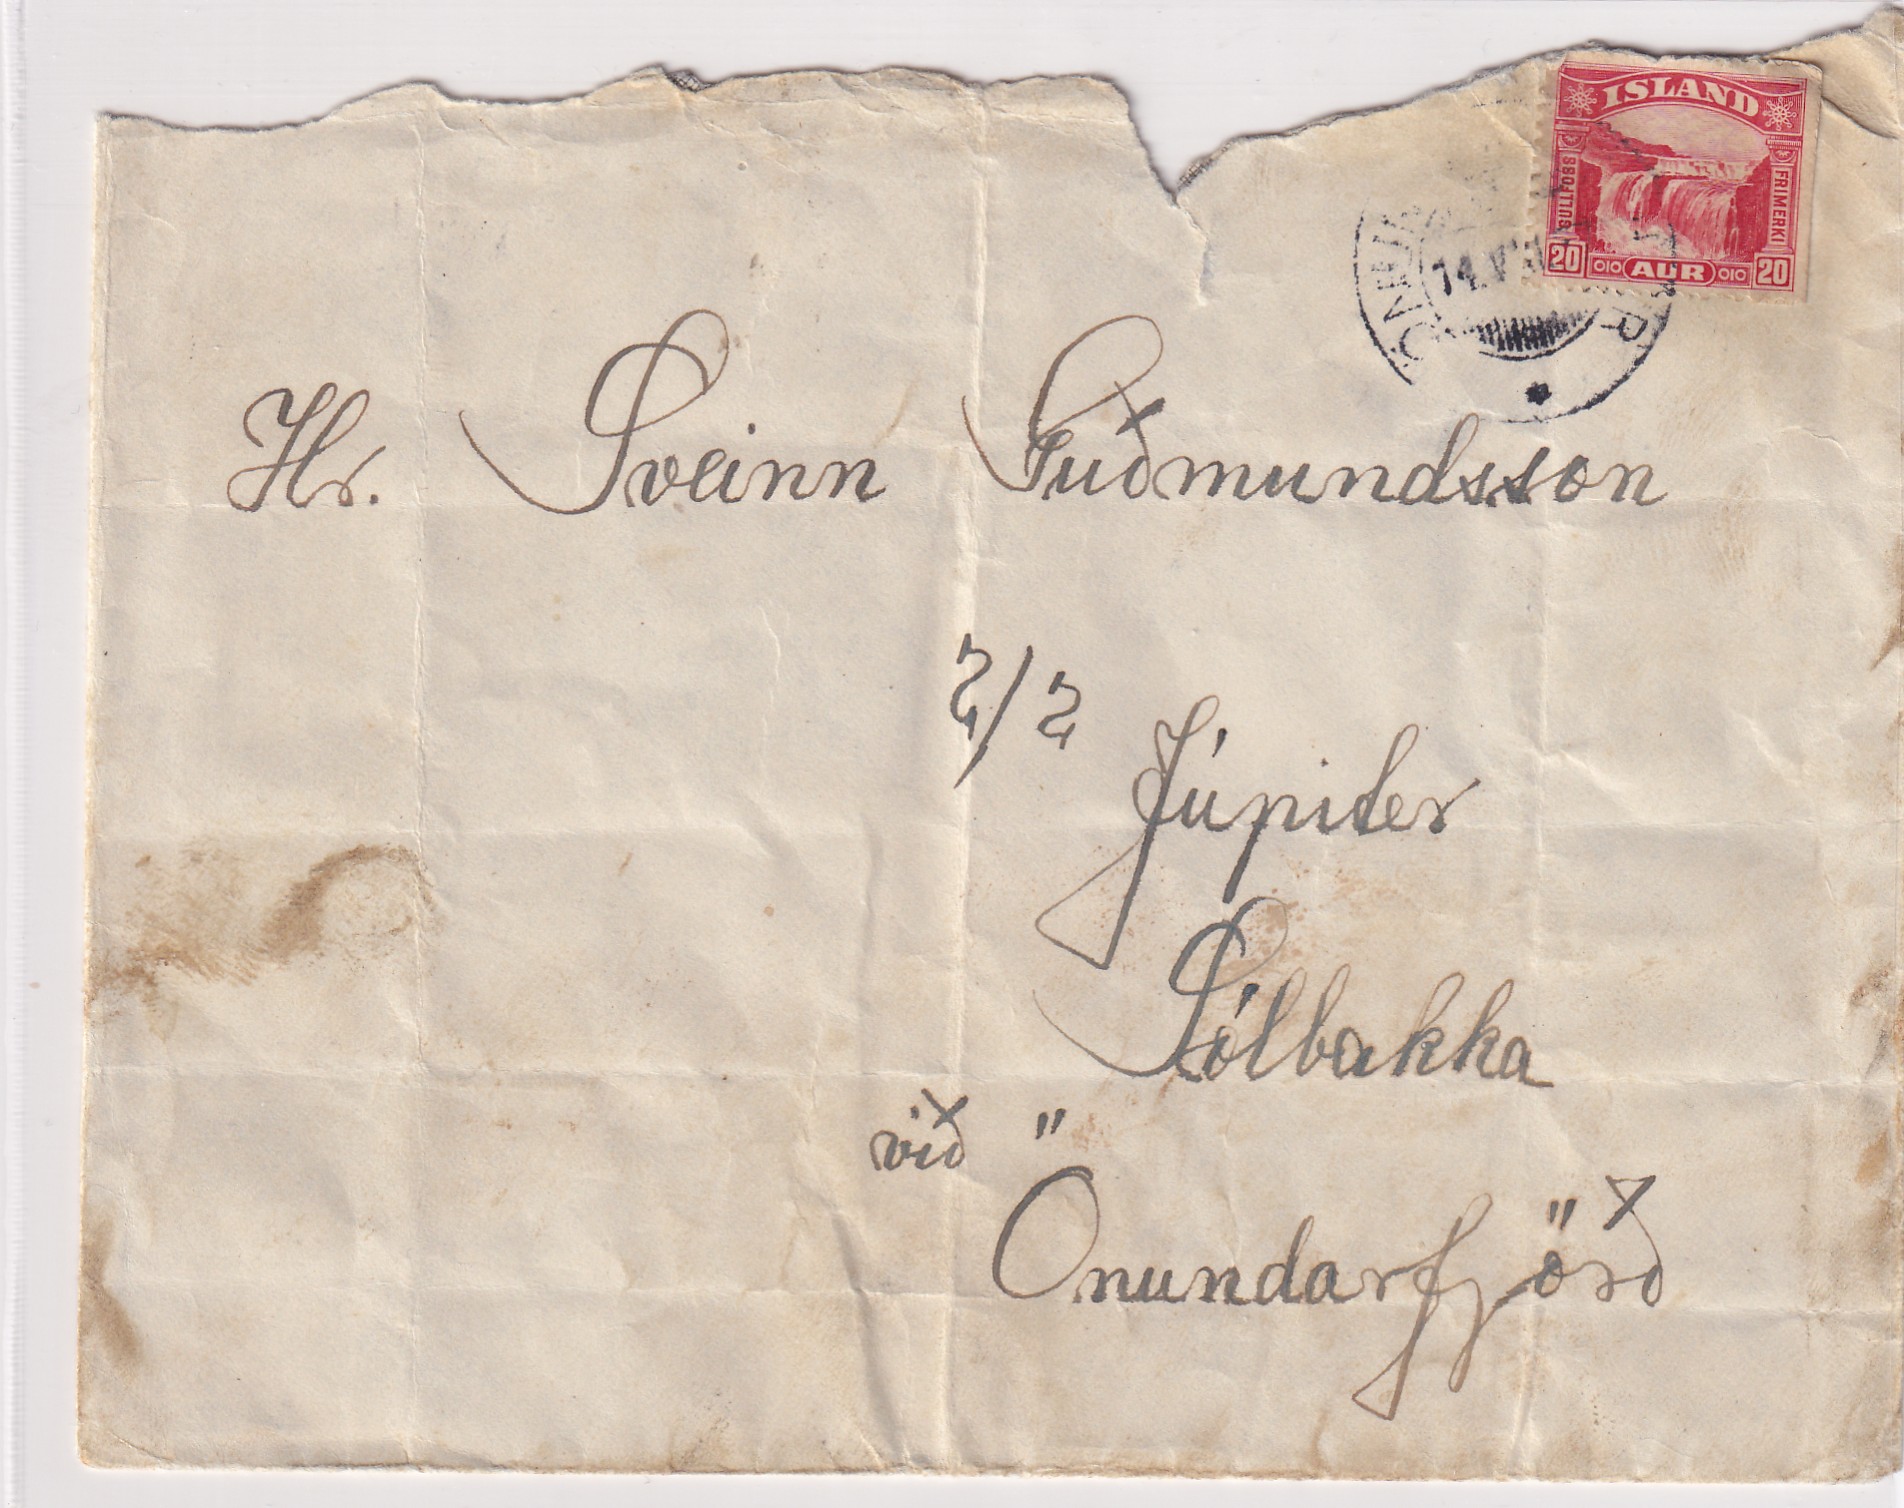 ISLAND
GULLFOSS
FRIMERKI
20 AUR 20
14.V
Hr. Sveinn Guðmundsson
2/2
Júpiter
Sólbakka
við "
Onundarfjörð